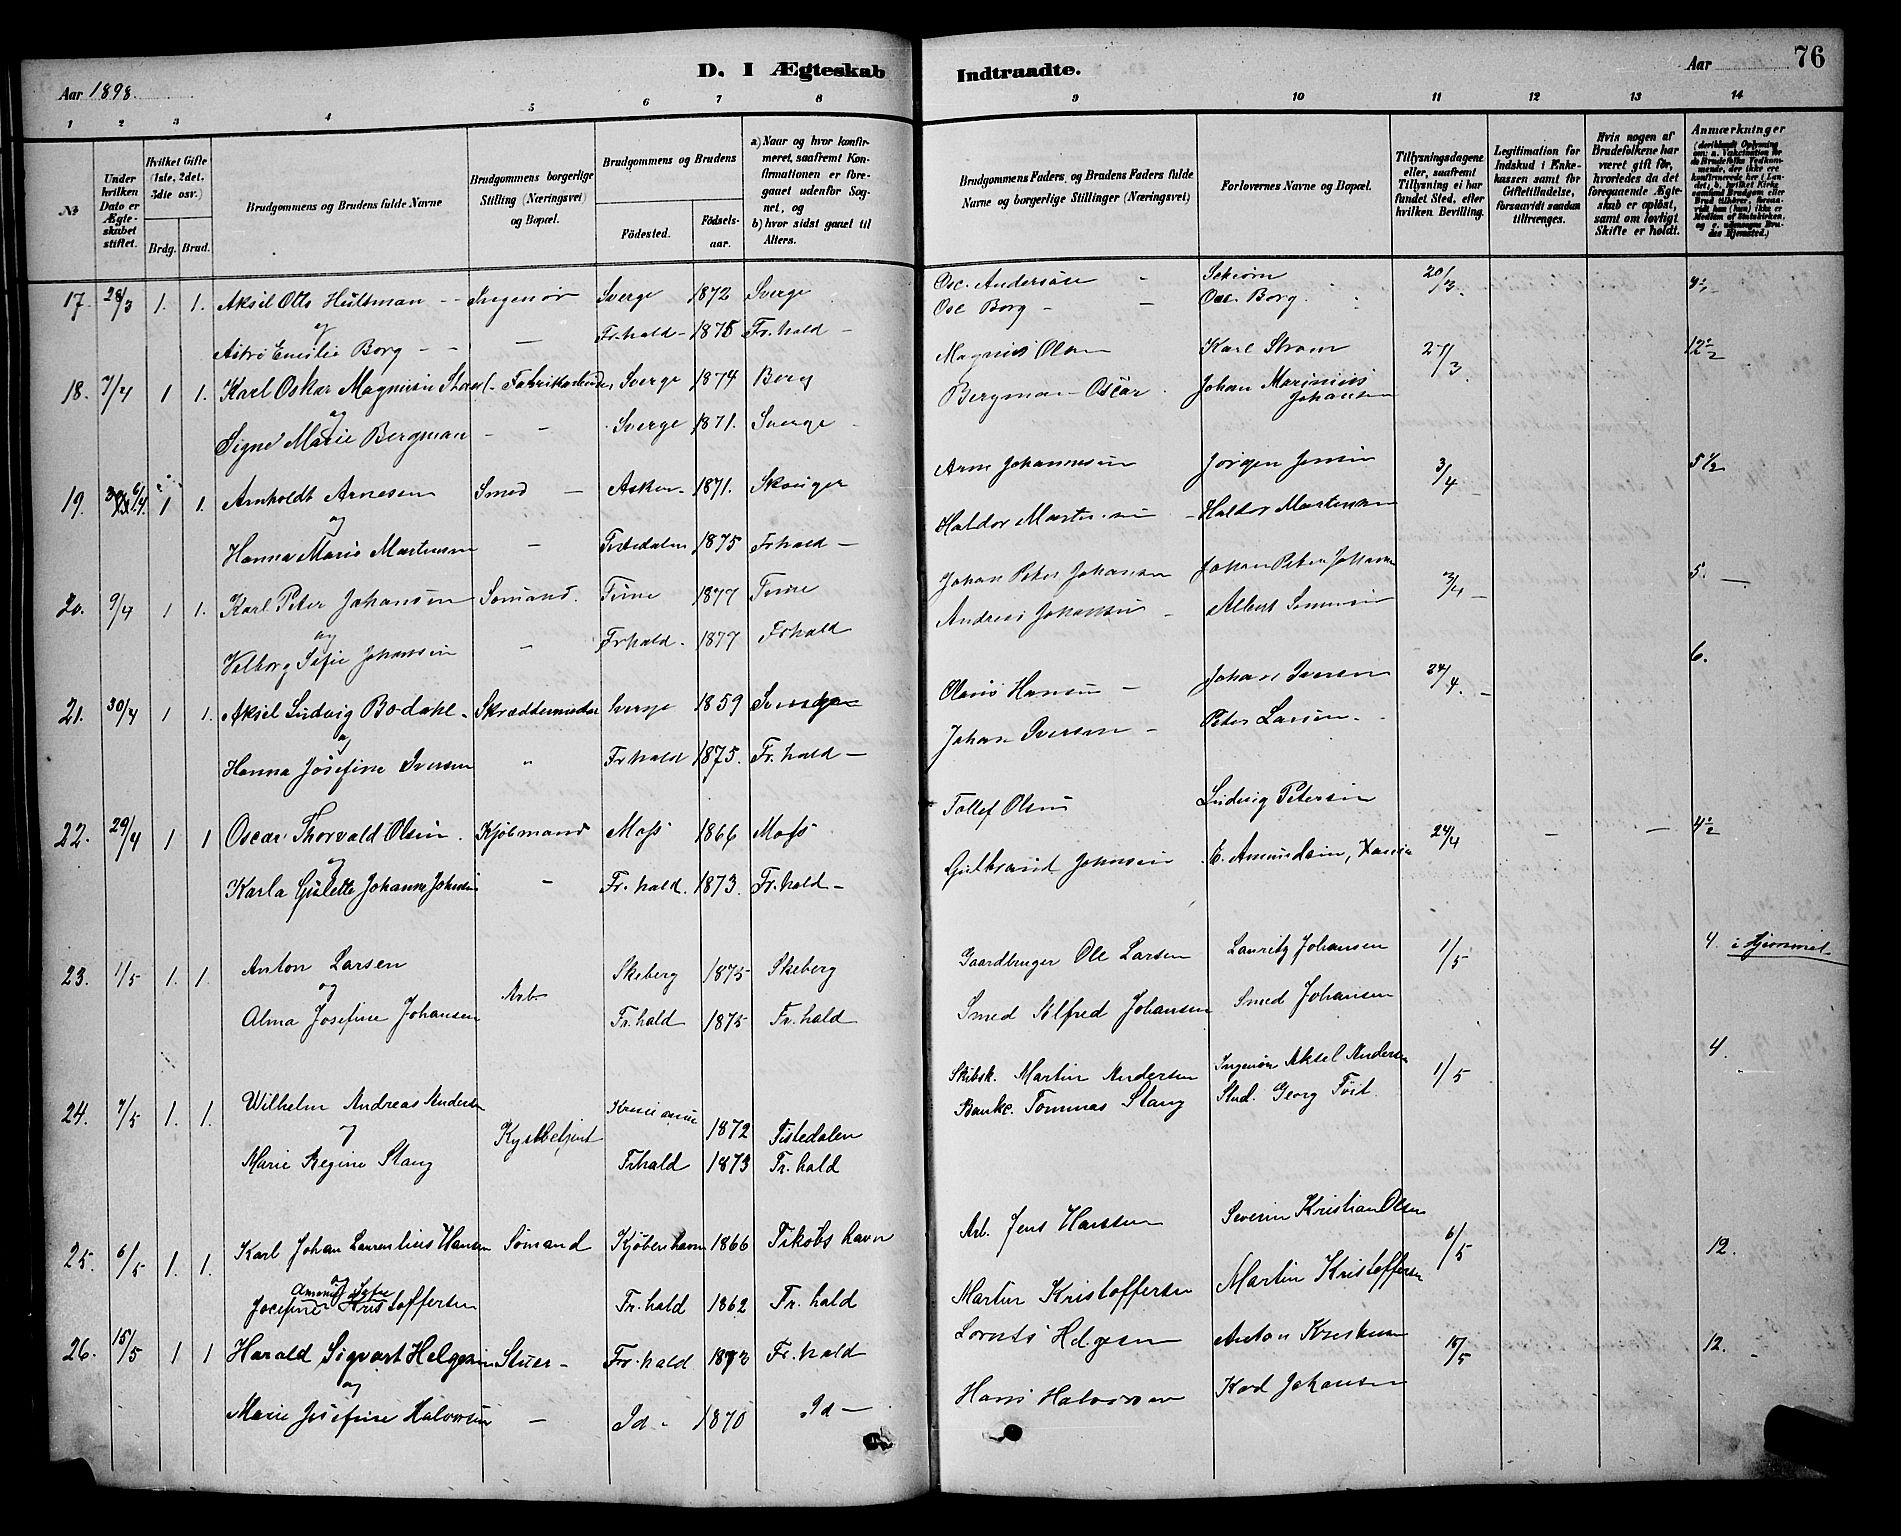 D. I Ægteskab
Indtraadte.
Aar
76
Aar 1898.
1 2 3 4 5 6 7 8
9 10 11 12 13 14
№
Under hvilken Dato er Ægteskabet stiftet.
Hvilket Gifte (1ste, 2det, 3die osv.)
Brdg. Brud.
Brudgommens og Brudens fulde Navne
Brudgommens borgerlige Stilling (Næringsvei) og Bopæl.
Brudgommens og Brudens
Födested.
Födselsaar.
a) Naar og hvor konfirmeret, saafremt Konfirmationen er foregaaet udenfor Sognet, og
b) hvor sidst gaaet til Alters.
Brudgommens Faders, og Brudens Faders fulde Navne og borgerlige Stillinger (Næringsvei)
Forlovernes Navne og Bopæl.
Tillysningsdagene eller, saafremt Tillysning ei har fundet Sted, efter hvilken Bevilling.
Legitimation for Indskud i Enkekassen samt for Giftetilladelse, forsaavidt saadan tiltrænges.
Hvis nogen af Brudefolkene har været gift för, hvorledes da det foregaaende Ægteskab er oplöst, samt om lovligt Skifte er holdt.
Anmærkninger
17. 28/3 1. 1. Aksel Otto Hultman - - Ingeniör Sverge 1872 Sverge
Osc. Andersöse
Osc. Borg 20/3
og
Astri Emilie Borg - - - Fr.hald - 1875 Fr.hald -
Osc Borg -
18. 7/4 1 1. Karl Oskar Magnusen Sverge 1874 Berg
Magnus Olsen Karl Strom 27/3 12½
og
Signe Marie Bergman - - Sverge 1871. Sverge
Bergman - Oscar Johan Marinius Johansen
19. 1 1. Arnholdt Arnesen Smed - Asker - 1871. Skouger
Arne Johannesen Jörgen Jensen 3/4 5½
og
Hanna Marie Martensen - Tistedalen 1875 Frhald -
Haldor Martensen - Haldor Martensen
20. 9/4 1 1. Karl Peter Johansen Sömand. 1877
Johan Peter Johansen Johan Peter Johansen 3/4 - 5. -
og
Valborg Sofie Johansen - Frhald - 1877 Frhald
Andreas Johansen - Albert
21. 30/4 1 1. Aksel Ludvig Bodahl - Skræddermester Sverge 1859 Sverge
Olaus Hansen - Johan Iversen 24/4. - 6.
og
Hanna Josefine Iversen " Frhald 1875. Fr.hald -
Johan Iversen - Peter Larsen -
22. 29/4 1 1 Oscar Thorvald Olsen. Kjöbmand Moss 1866 Moss
Tollef Olsen Ludvig Petersen 24/4 - - 4½
og
Karla Gulette Johanne Johnsen - Fr.hald. 1873. Fr.hald -
Gulbrand Johnsen E. Amundsen,
23. 1/5 1. 1. Anton Larsen Arb Skeberg 1875 Skeberg
Gaardbruger Ole Larsen Lauritz Johansen 1/5 4. i Hjemmet
og
Alma Josefine Johansen Fr.hald 1875 Fr.hald
Smed Alfred Johansen Smed Johansen
24. 7/5 1. 1. Wilhelm Andreas Andersen 1872 Tistedalen
Skibsk. Martin Andersen Ingeniör Aksel Andersen 1/5 4.
og
Marie Regine Stang Frhald 1873 Fr.hald
Bankc. Tommas Stang Stud. Georg
25. 6/5 1. 1. Karl Johan Laurentius Hansen Sömand Kjöbenhavn 1866
Arb. Jens Hansen Severin Kristian Olsen 6/5 12.
og
Josefine Kristoffersen Fr.hald 1862 Fr.hald
Martin Kristoffersen Martin Kristoffersen
26. 15/5 1 1 Harald Sigvart Helgesen Stuer - Fr.hald 1873 Fr.hald
Lornts Helgesen Anton 15/5 12.
og
Marie Josefine Halvorsen - Id - 1870 Id -
Hans Halvorsen Karl Johansen